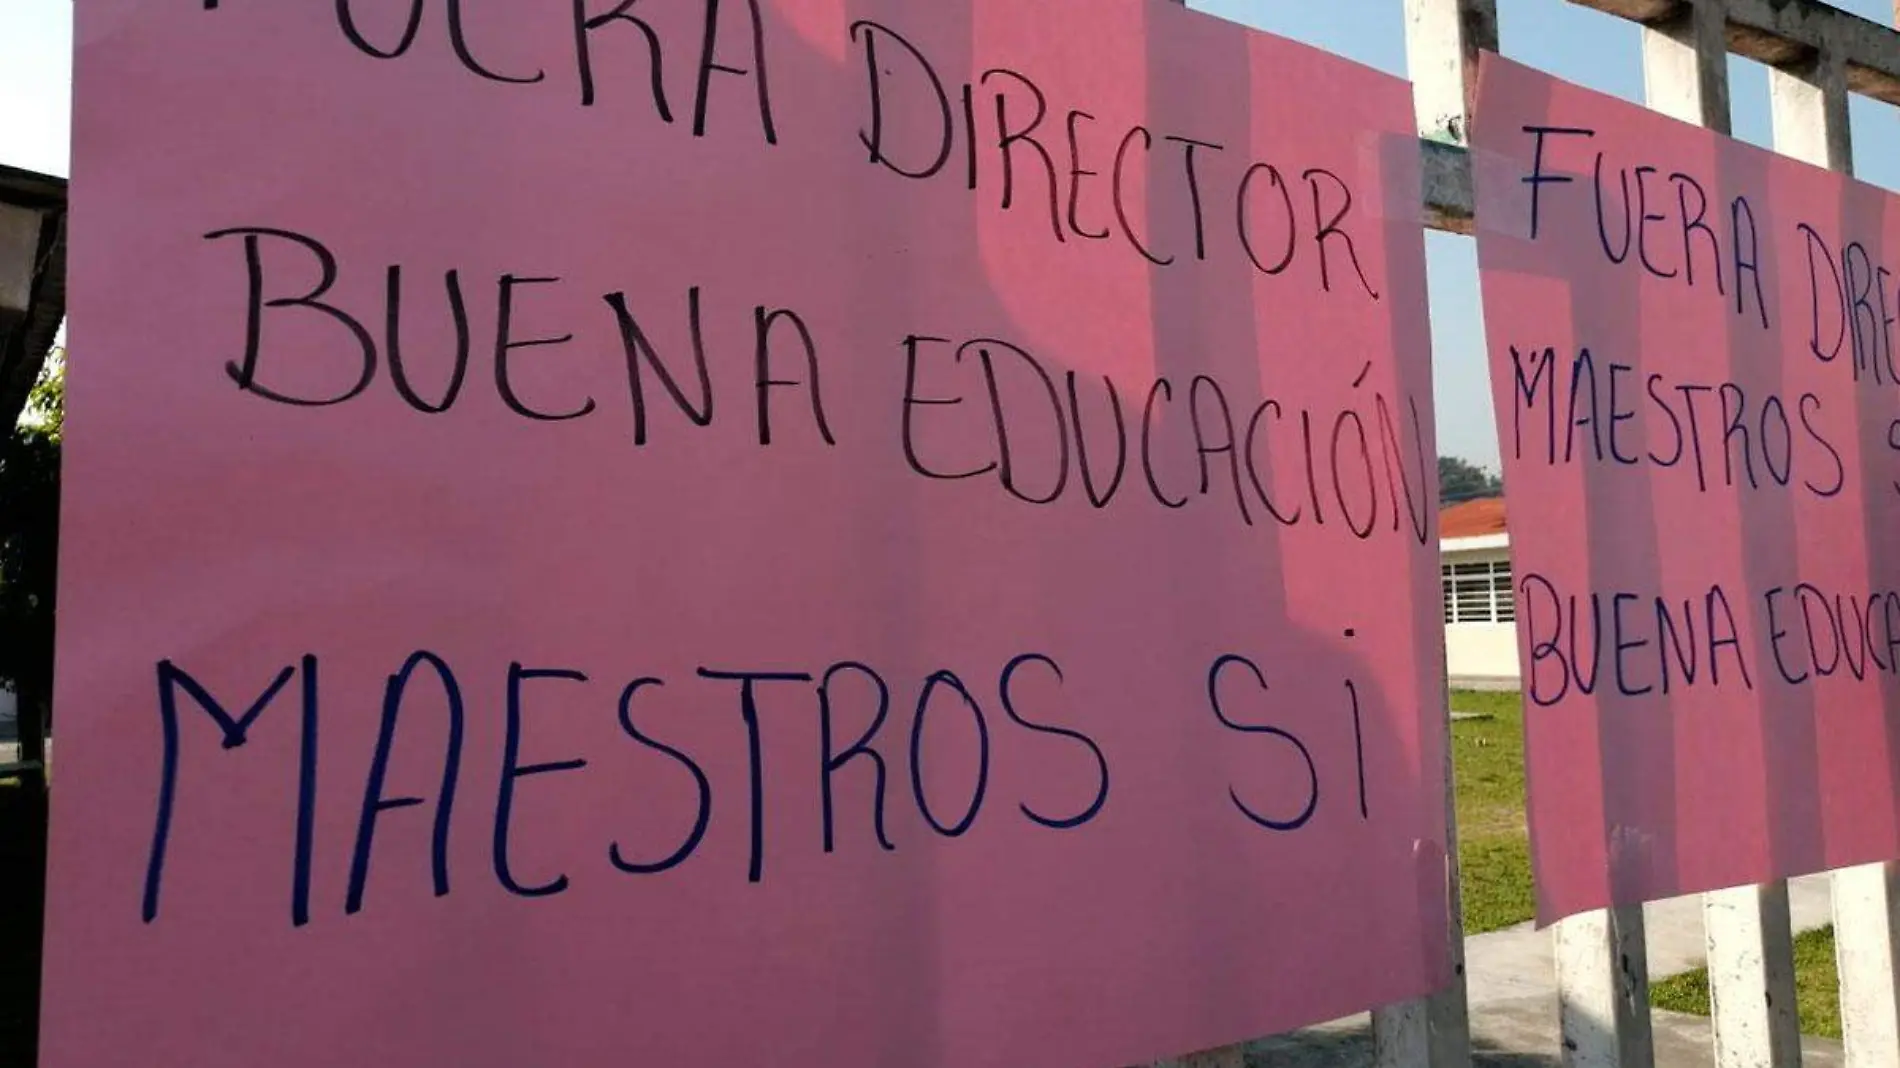 FUERA DIRECTOR
BUENA EDUCACIÓN
MAESTROS Si
FUERA DIRE
MAESTROS S
BUENA EDUCA